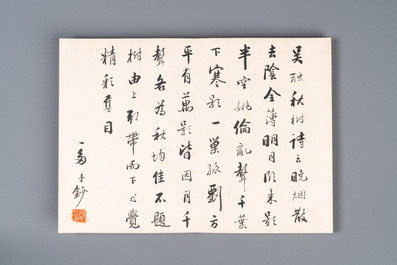 吴融秋树诗云晓烟散
去阴全薄明月照来影
半空姚伦乱声千葉
下寒影一巢孤刘方
平有万影皆因月千
声各为秋均佳不题
树由上引带而下尤觉
精彩夺目
一多手钞